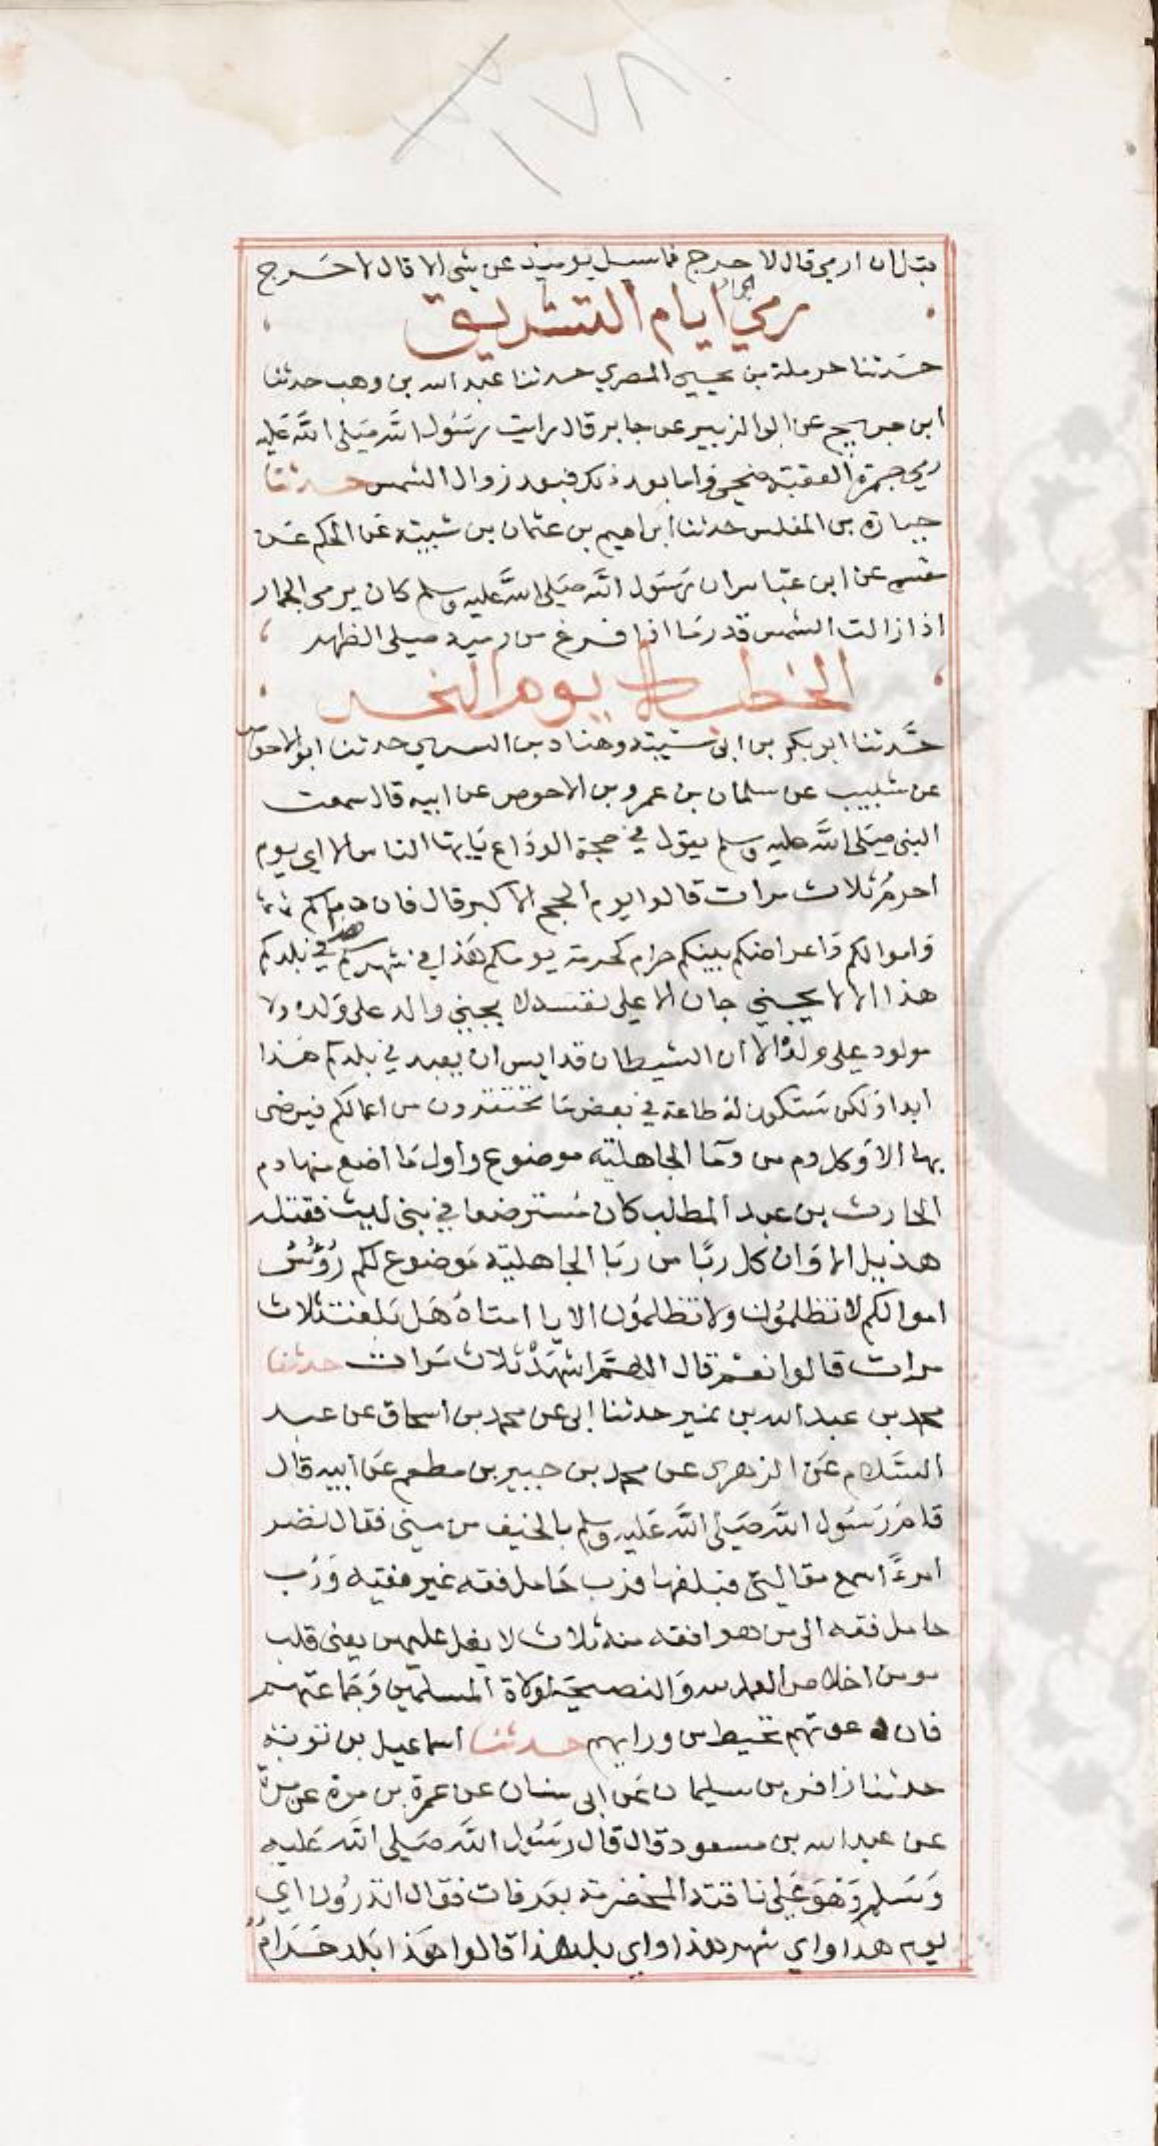 ١٧٨
قبل ان ارمي قال لا حرج فما سيل يوميذ عن شي الا قال لا حَرج
رمي الجمار ايام التشريق
حَدثنا حرملة بن يحيى المصري حدثنا عبد الله بن وهب حدثنا
ابن جريج عن ابي الزبير عن جابر قال رايت رسُول الله صَلى الله عَليه
رمي جمرة العقبة ضحى واما بعد ذلك فبعد زوال الشمس حدثنا
جبارة بن المغلس حدثنا ابراهيم بن عثمان بن شيبة عَن الحكم عَن
مقسم عن ابن عبّاس ان رَسَول الله صَلى الله عليه وسلم كان يرمى الجمار
اذا زالت الشمس قدر مَا اذا فرغ من رميه صلى الظهر
الخطبة يوم النحر
حَدثنا ابو بكر بن ابي شيبة وهناد بن السري حدثنا ابو الاحوص
عن شبيب عن سلمان بن عمرو بن الاحوص عن ابيه قال سمعت
النبي صَلى الله عليه وسلم يقول في حجة الودَاع يَايها الناس الا اي يوم
احرمُ ثلاث مرات قالوا يوم الحج الاكبر قال فان دماكم
وَاموالكم وَاعراضكم بينكم حرام كحرمة يومكم هَذا في شهركم هذا في بلدكم
هذا الا لا يجني جان الا على نفسه لا يجني والد على وَلده ولا
مولود على ولدهُ الا ان الشيطان قد ايس ان يعبد في بلدكم هَذا
ابدا وَلكن سَتكون لهُ طاعة في بعض مَا تحتقرون من اعمالكم فيرضى
بها الا وَكل دم من دمَا الجاهلية موضوع وأول مَا اضع منها دم
الحارث بن عبد المطلب كان مُسترضعا في بني ليث فقتله
هذيل الا وَان كل ربًا من ربَا الجاهلية مَوضوع لكم رُؤُسُ
اموالكم لا تظلمُون ولا تظلمُون الا يا امتاهُ هَل بَلغت ثلاث
مرات قالوا نعَم قال اللهمَّ اشهَدْ ثلاث مَرات حدثنا
محمد بن عبد الله بن نمير حدثنا ابي عن محمد بن اسحاق عن عبد
السَّلام عَن الزهرى عن محمد بن جبير بن مطعم عَن ابيه قال
قامَ رَسَول الله صَلى الله عَليه وسلم بالخيف من منى فقال نضر
امرءًا سمع مقالتي فبلغها فرب حَامل فقه غير فقيه وَرُب
حامل فقه الى من هو افقه منه ثلاث لا يغل عليهن يعنى قلب
مومن اخلاص العمل لله وَالنصيحة لولاة المسلمين وَجَماعتهم
فان دعوتهم تحيط من ورايهم حدثنا اسماعيل بن توبة
حدثنا زافر بن سليمان عَن ابي سنان عن عمرة بن مرة عن مرة
عن عبد الله بن مسعود قال قال رسُول الله صَلى الله عَليه
وَسَلم وَهوَ عَلى ناقته المخضرمة بعَرفات فقال اتدرُون اي
يوم هذا واي شهر هذا واي بلد هذا قالوا هَذا بَلد حَرَامُ